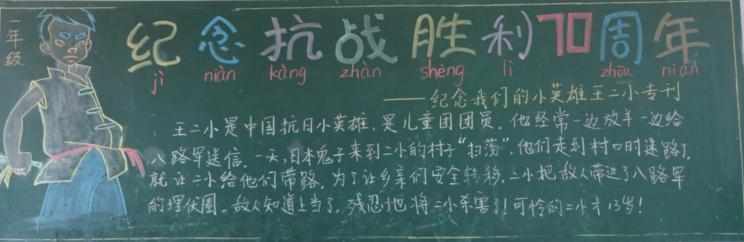 一年级
纪念抗战胜利70周年
jì niàn kàng zhàn shèng lì zhōu nián
——纪念我们的小英雄王二小专刊
王二小是中国抗日小英雄,是儿童团团员。他经常一边放羊一边给
八路军送信。一天,日本鬼子来到二小的村子“扫荡”,他们走到村口时迷路了,
就让二小给他们带路。为了让乡亲们安全转移,二小把敌人带进了八路军
的埋伏圈。敌人知道上当了,残忍地将二小杀害了!可怜的二小才13岁!